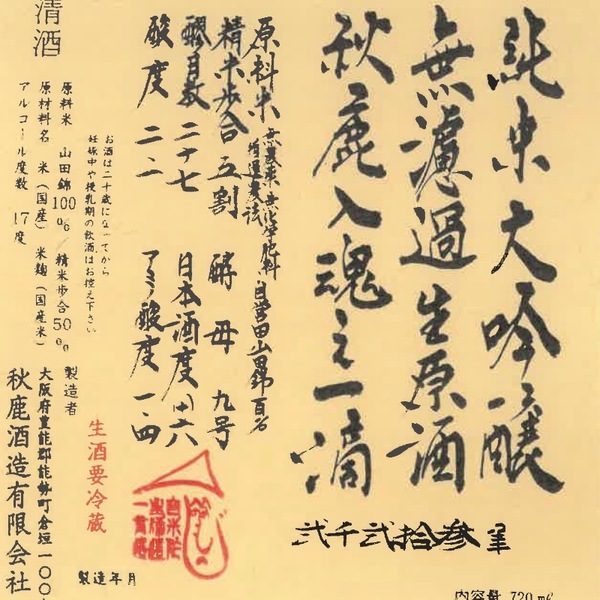 純米大吟醸
無濾過生原酒
秋鹿入魂之一滴
弐千弐拾参年
原料米 無農薬無化学肥料 自営田山田錦百%
精米歩合 五割
酵母 九号
醪日数 二十七
日本酒度 +六
酸度 二・二
アミノ酸度 一・四
お酒は二十歳になってから
妊娠中や授乳期の飲酒はお控え下さい
生酒要冷蔵
原料米 山田錦100% 精米歩合50%
原材料名 米(国産) 米麹(国産米)
アルコール度数 17度
清酒
製造者
大阪府豊能郡能勢町倉垣一〇〇
秋鹿酒造有限会社
製造年月
内容量 720mℓ